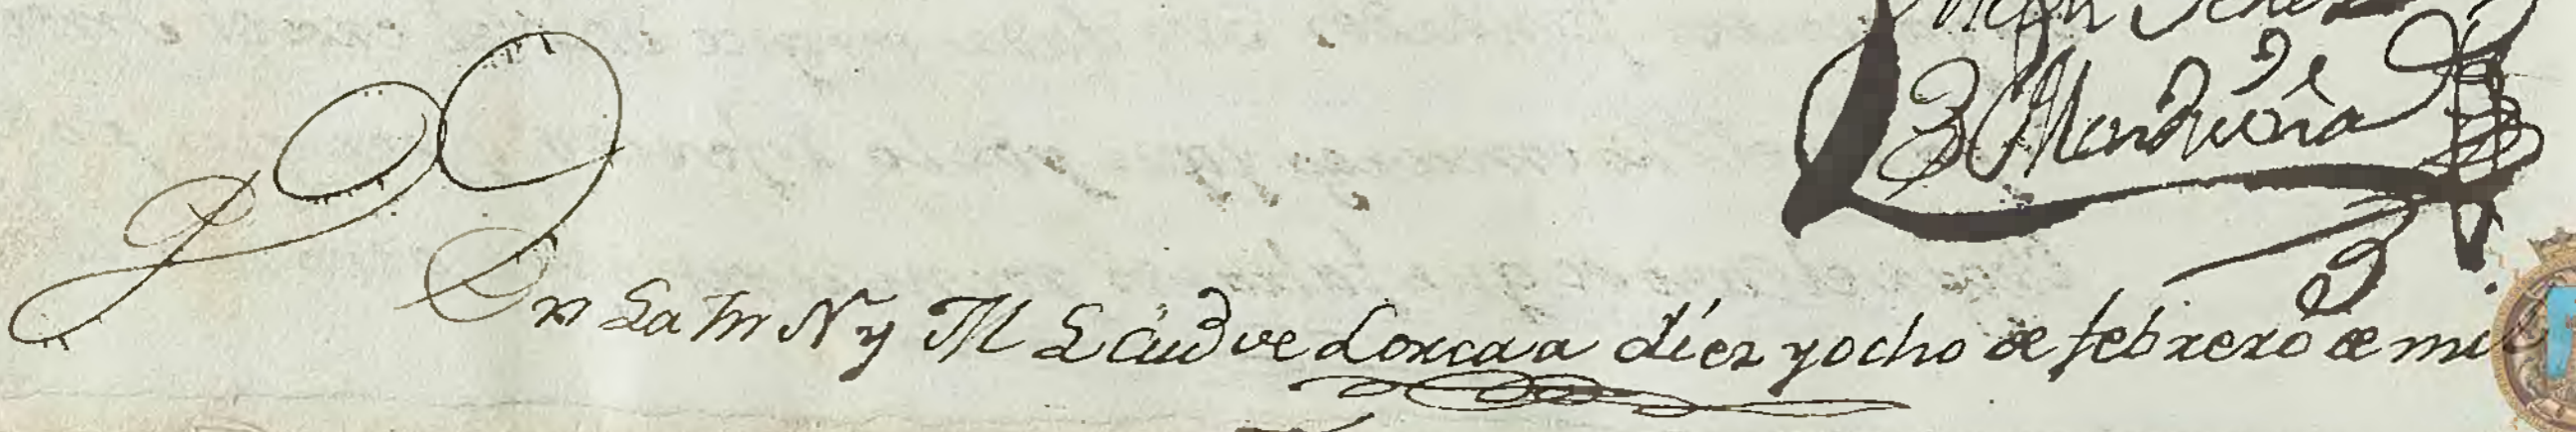 de
Monduoña
En La m N y M L Ciud de Lorca a diez y ocho de febrero de mil